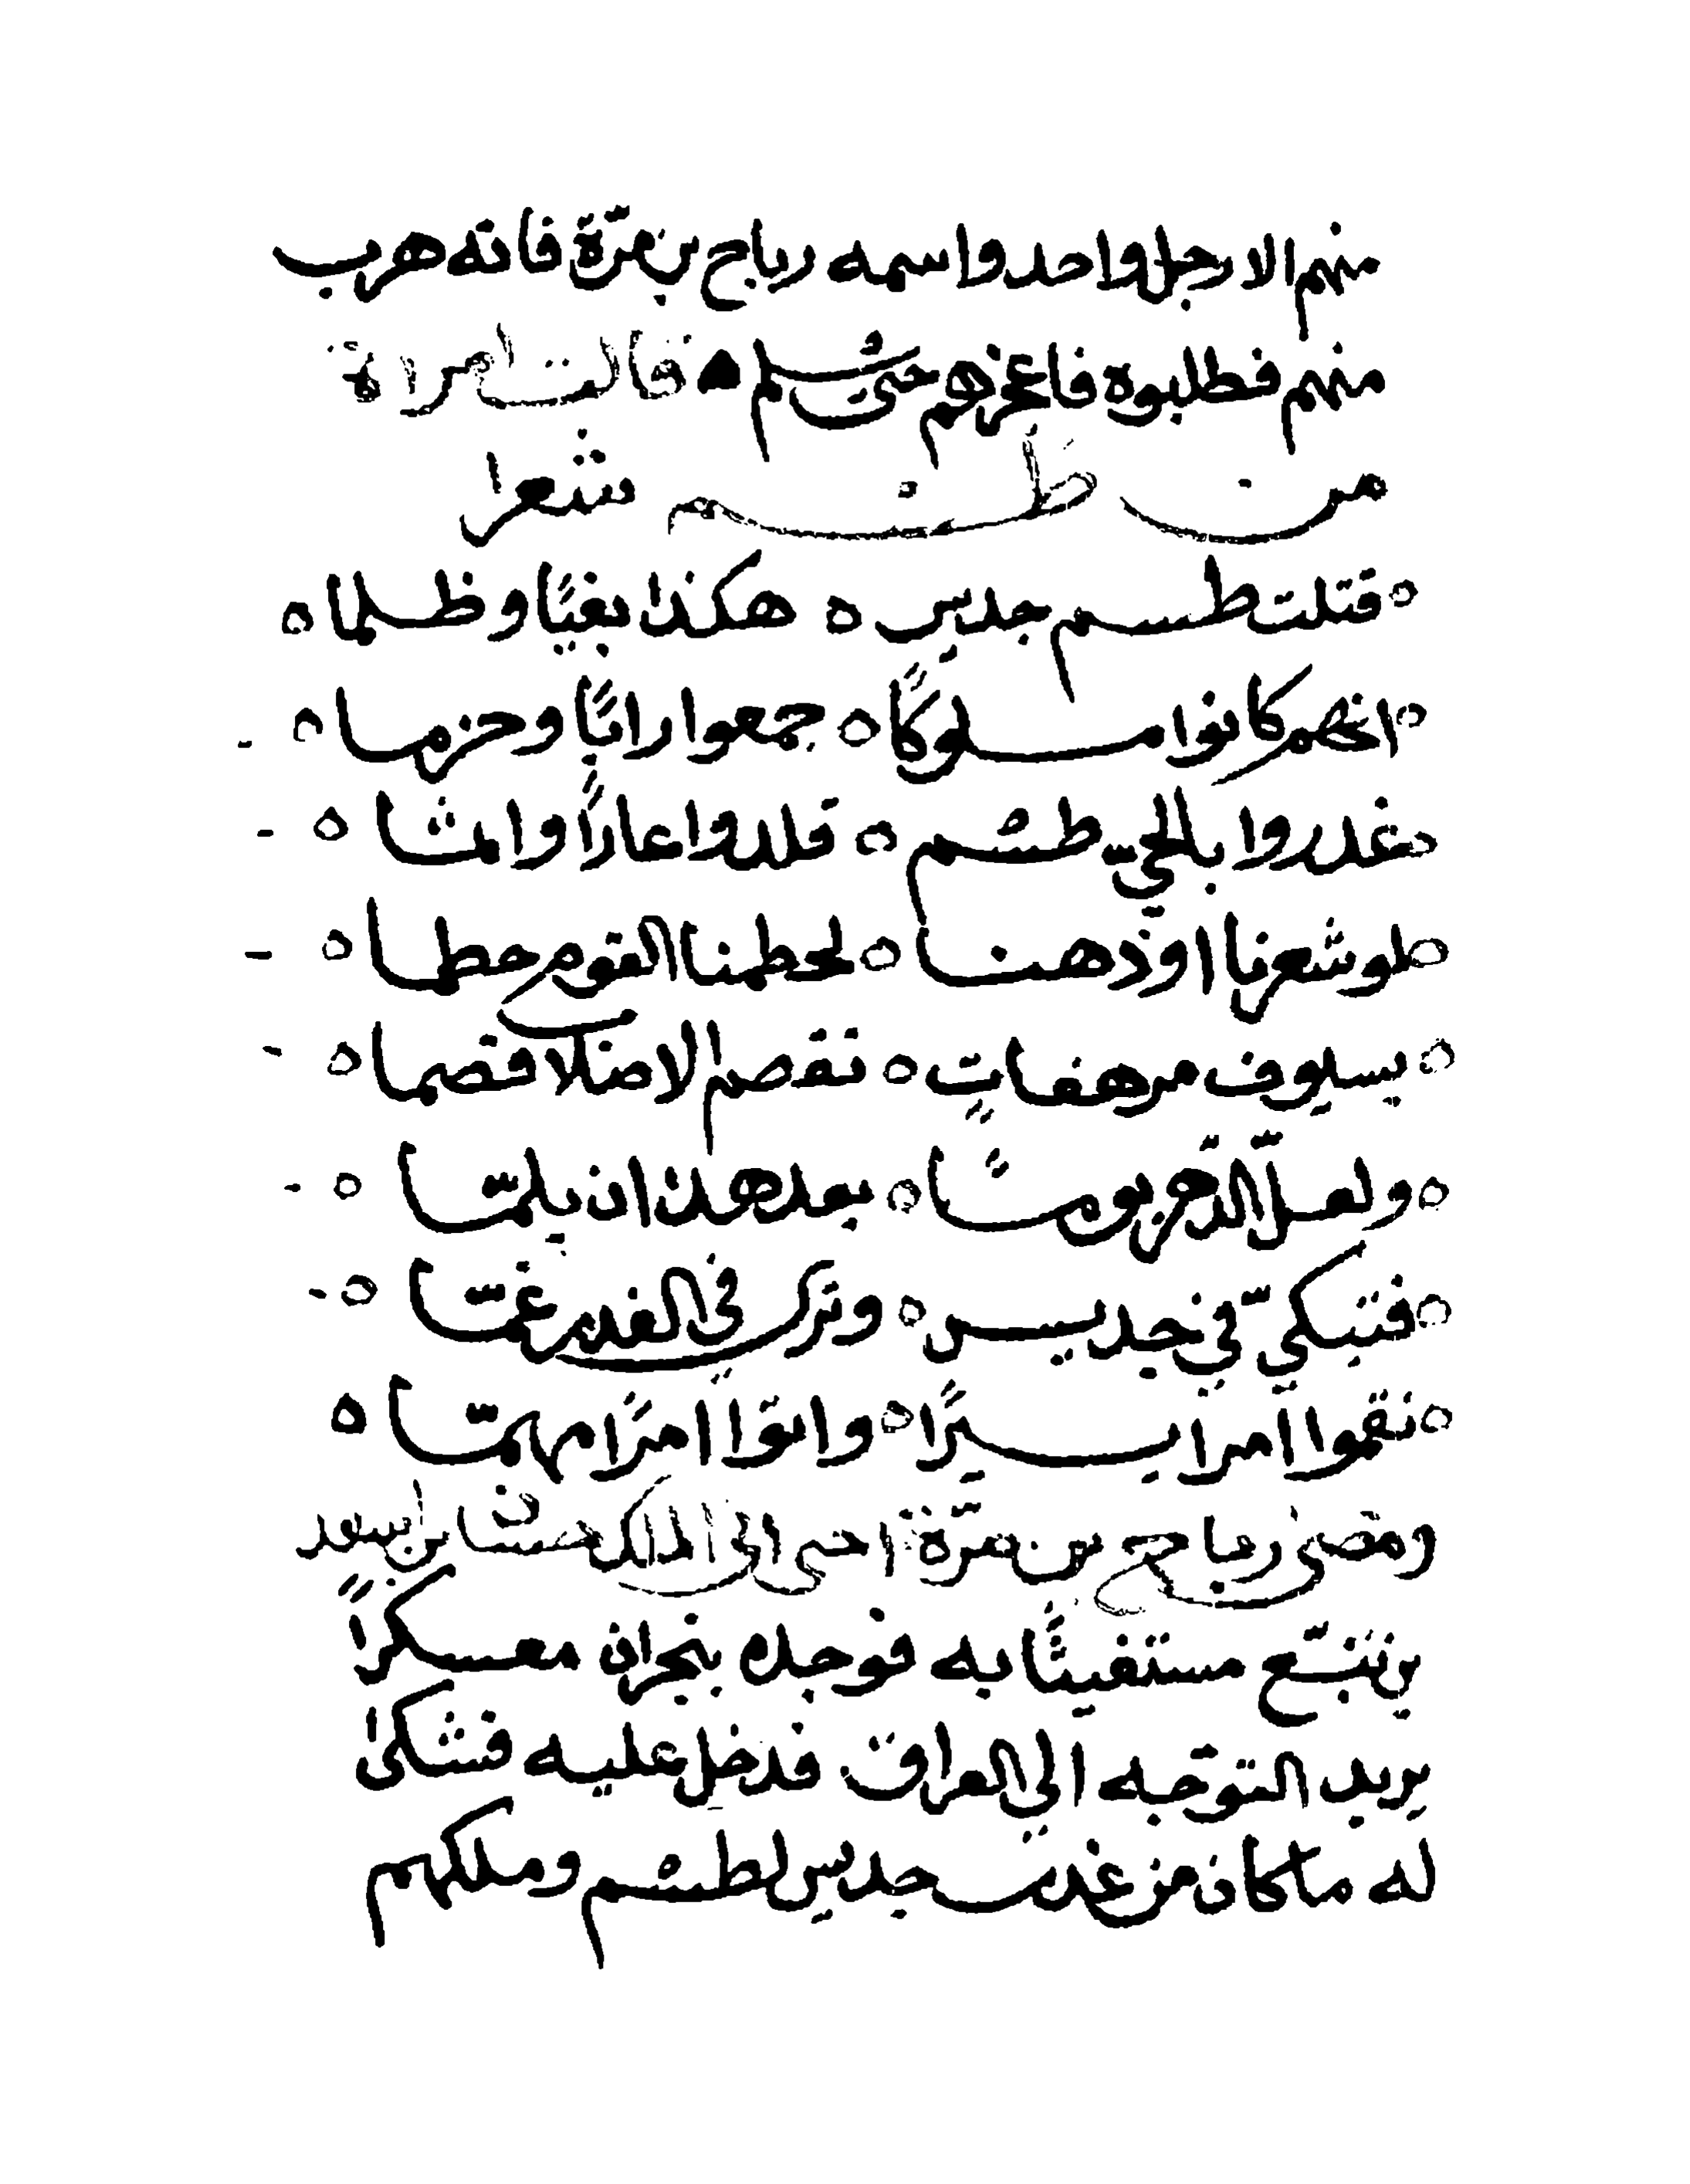 منهم الا رجل واحد واسمه رباح بن مرّة فانه هرب
منهم فطلبوه فاعجزهم حتى سلم قالت امراة
من طسم شعرا
قتلت طسم جديس ه هكذا بغيًا وظلما ه
انهم كانوا ملوكًا ه جمعوا رايًا وحزما ه
غدروا بالحيّ طسم ه قلدوا عارًا واثما ه
لو شعرنا او ذهنا ه لحطمنا القوم حطما ه
بسيوف مرهفاتٍ ه تقصم الاضلا قصما ه
ولعلّ الدّهر يومًا ه بعد هذا ان يلمّا ه
فتبكيّ في جديس ه وترى في الغدر غمّا ه
نقموا امرا يسيرًا ه واتوا امرًا مهمّا ه
ومضى رباح بن مرّة احى الى الملك حسّان بن اسعد
بن تبّع مستغيثًا به فوجده بنجران معسكرًا
يريد التوجّه الي العراق فدخل عليه فشكى
له ما كان من غدر جديس لطسم وملكهم